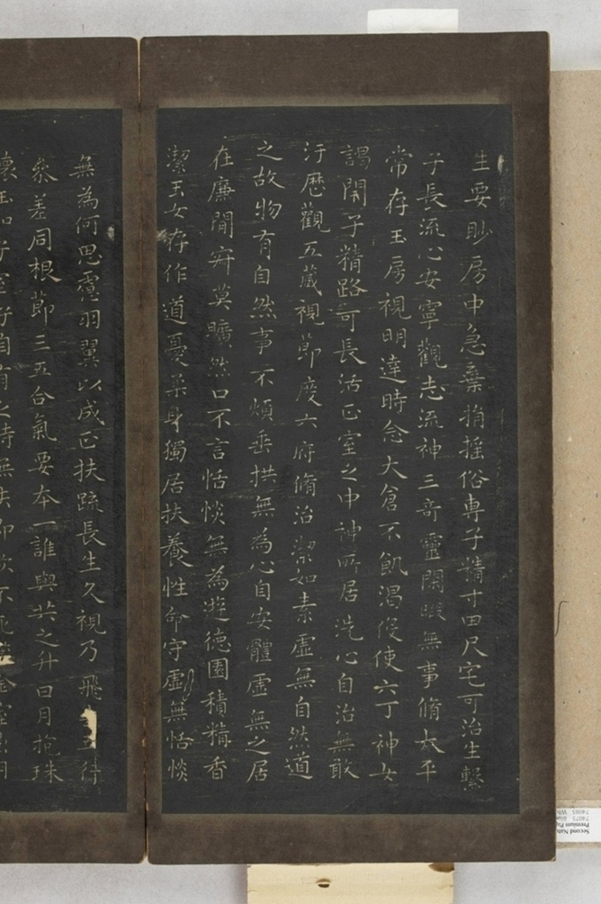 生要眇房中急棄捐摇俗專子精寸田尺宅可治生繫
子長流心安寧觀志流神三奇靈閑暇無事脩太平
常存玉房視明達時念大倉不飢渴役使六丁神女
謁閉子精路可長活正室之中神所居洗心自治無敢
汙歷觀五藏視節度六府脩治潔如素虛無自然道
之故物有自然事不煩垂拱無為心自安體虛無之居
在廉間寂莫曠然口不言恬惔無為遊德園積精香
潔玉女存作道憂柔身獨居扶養性命守虛無恬惔
無為何思慮羽翼以成正扶疏長生久視乃飛 五行
參差同根節三五合氣要本一誰與共之升日月抱珠
懷玉和子室子自有之持無失即欲不死 金室
Second Natu
Premium Pa